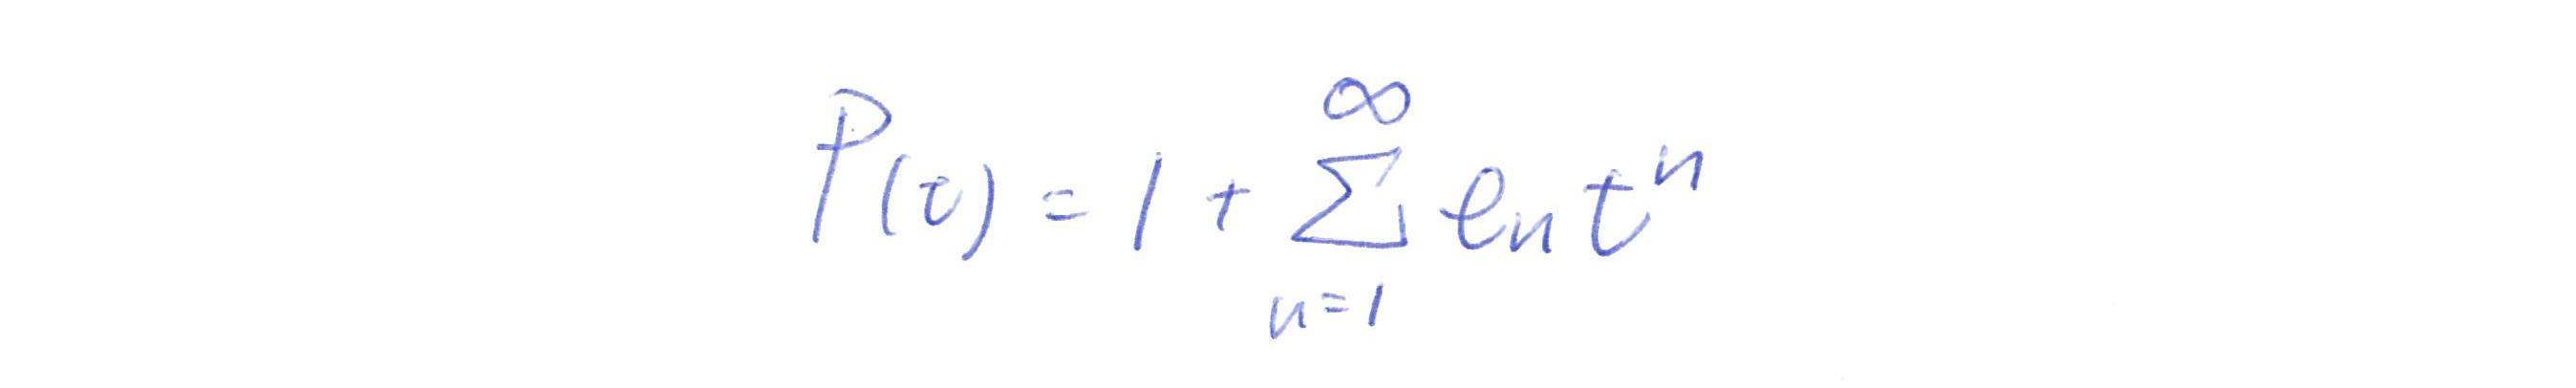 P(t) = 1 + \sum_{n=1}^{\infty} e_n t^n